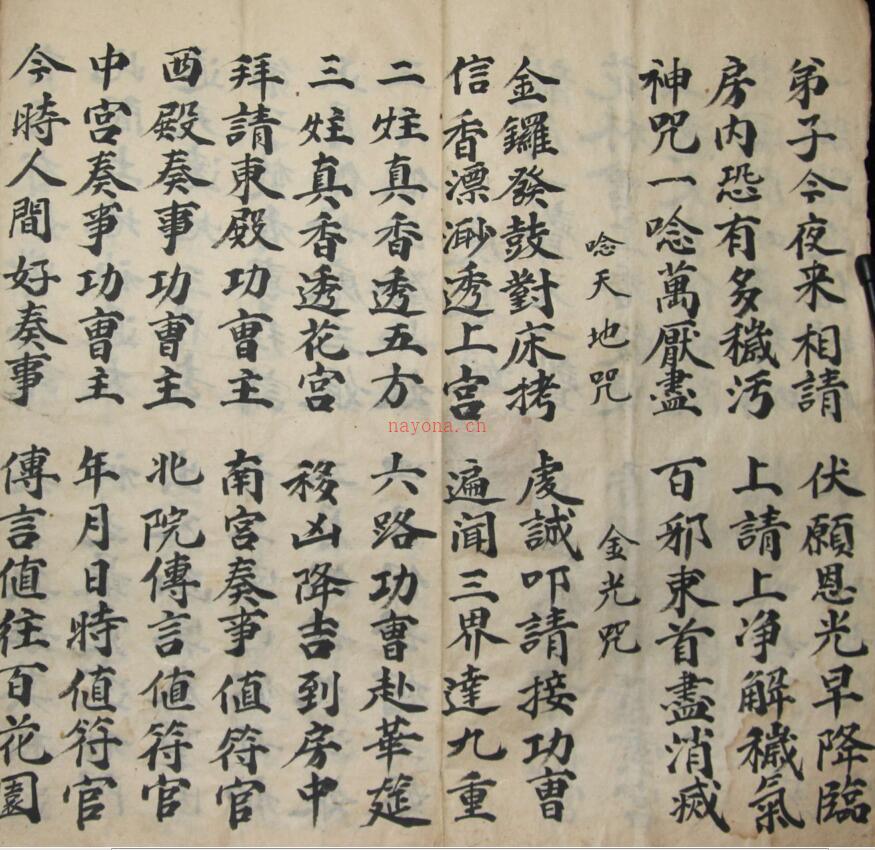 弟子今夜来相請　伏願恩光早降臨
房內恐有多穢汚　上請上净解穢氣
神咒一唸萬厭盡　百邪束首盡消滅
唸天地咒　金光咒
金鑼發鼓對床拷　虔誠叩請接功曹
信香漂渺透上宮　遍闻三界達九重
二炷真香透五方　六路功曹赴華筵
三炷真香透花宮　移凶降吉到房中
拜請東殿功曹主　南宮奏事值符官
西殿奏事功曹主　北院傳言值符官
中宮奏事功曹主　年月日時值符官
今時人間好奏事　傳言值往百花園
nayona.cn